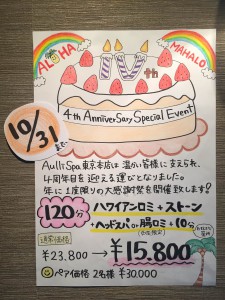 ALOHA
MAHALO
IVth
4th Anniversary Special Event
10/31まで
Aulii Spa 東京本店は 温かい皆様に支えられ、
4周年目を迎える運びとなりました。
年に1度限りの大感謝祭を開催致します?
120分 ハワイアンロミ+ストーン
+ヘッドスパor腸ロミ+10分
通常価格
¥23,800 → ¥15,800
ペア価格 2名様 ¥30,000